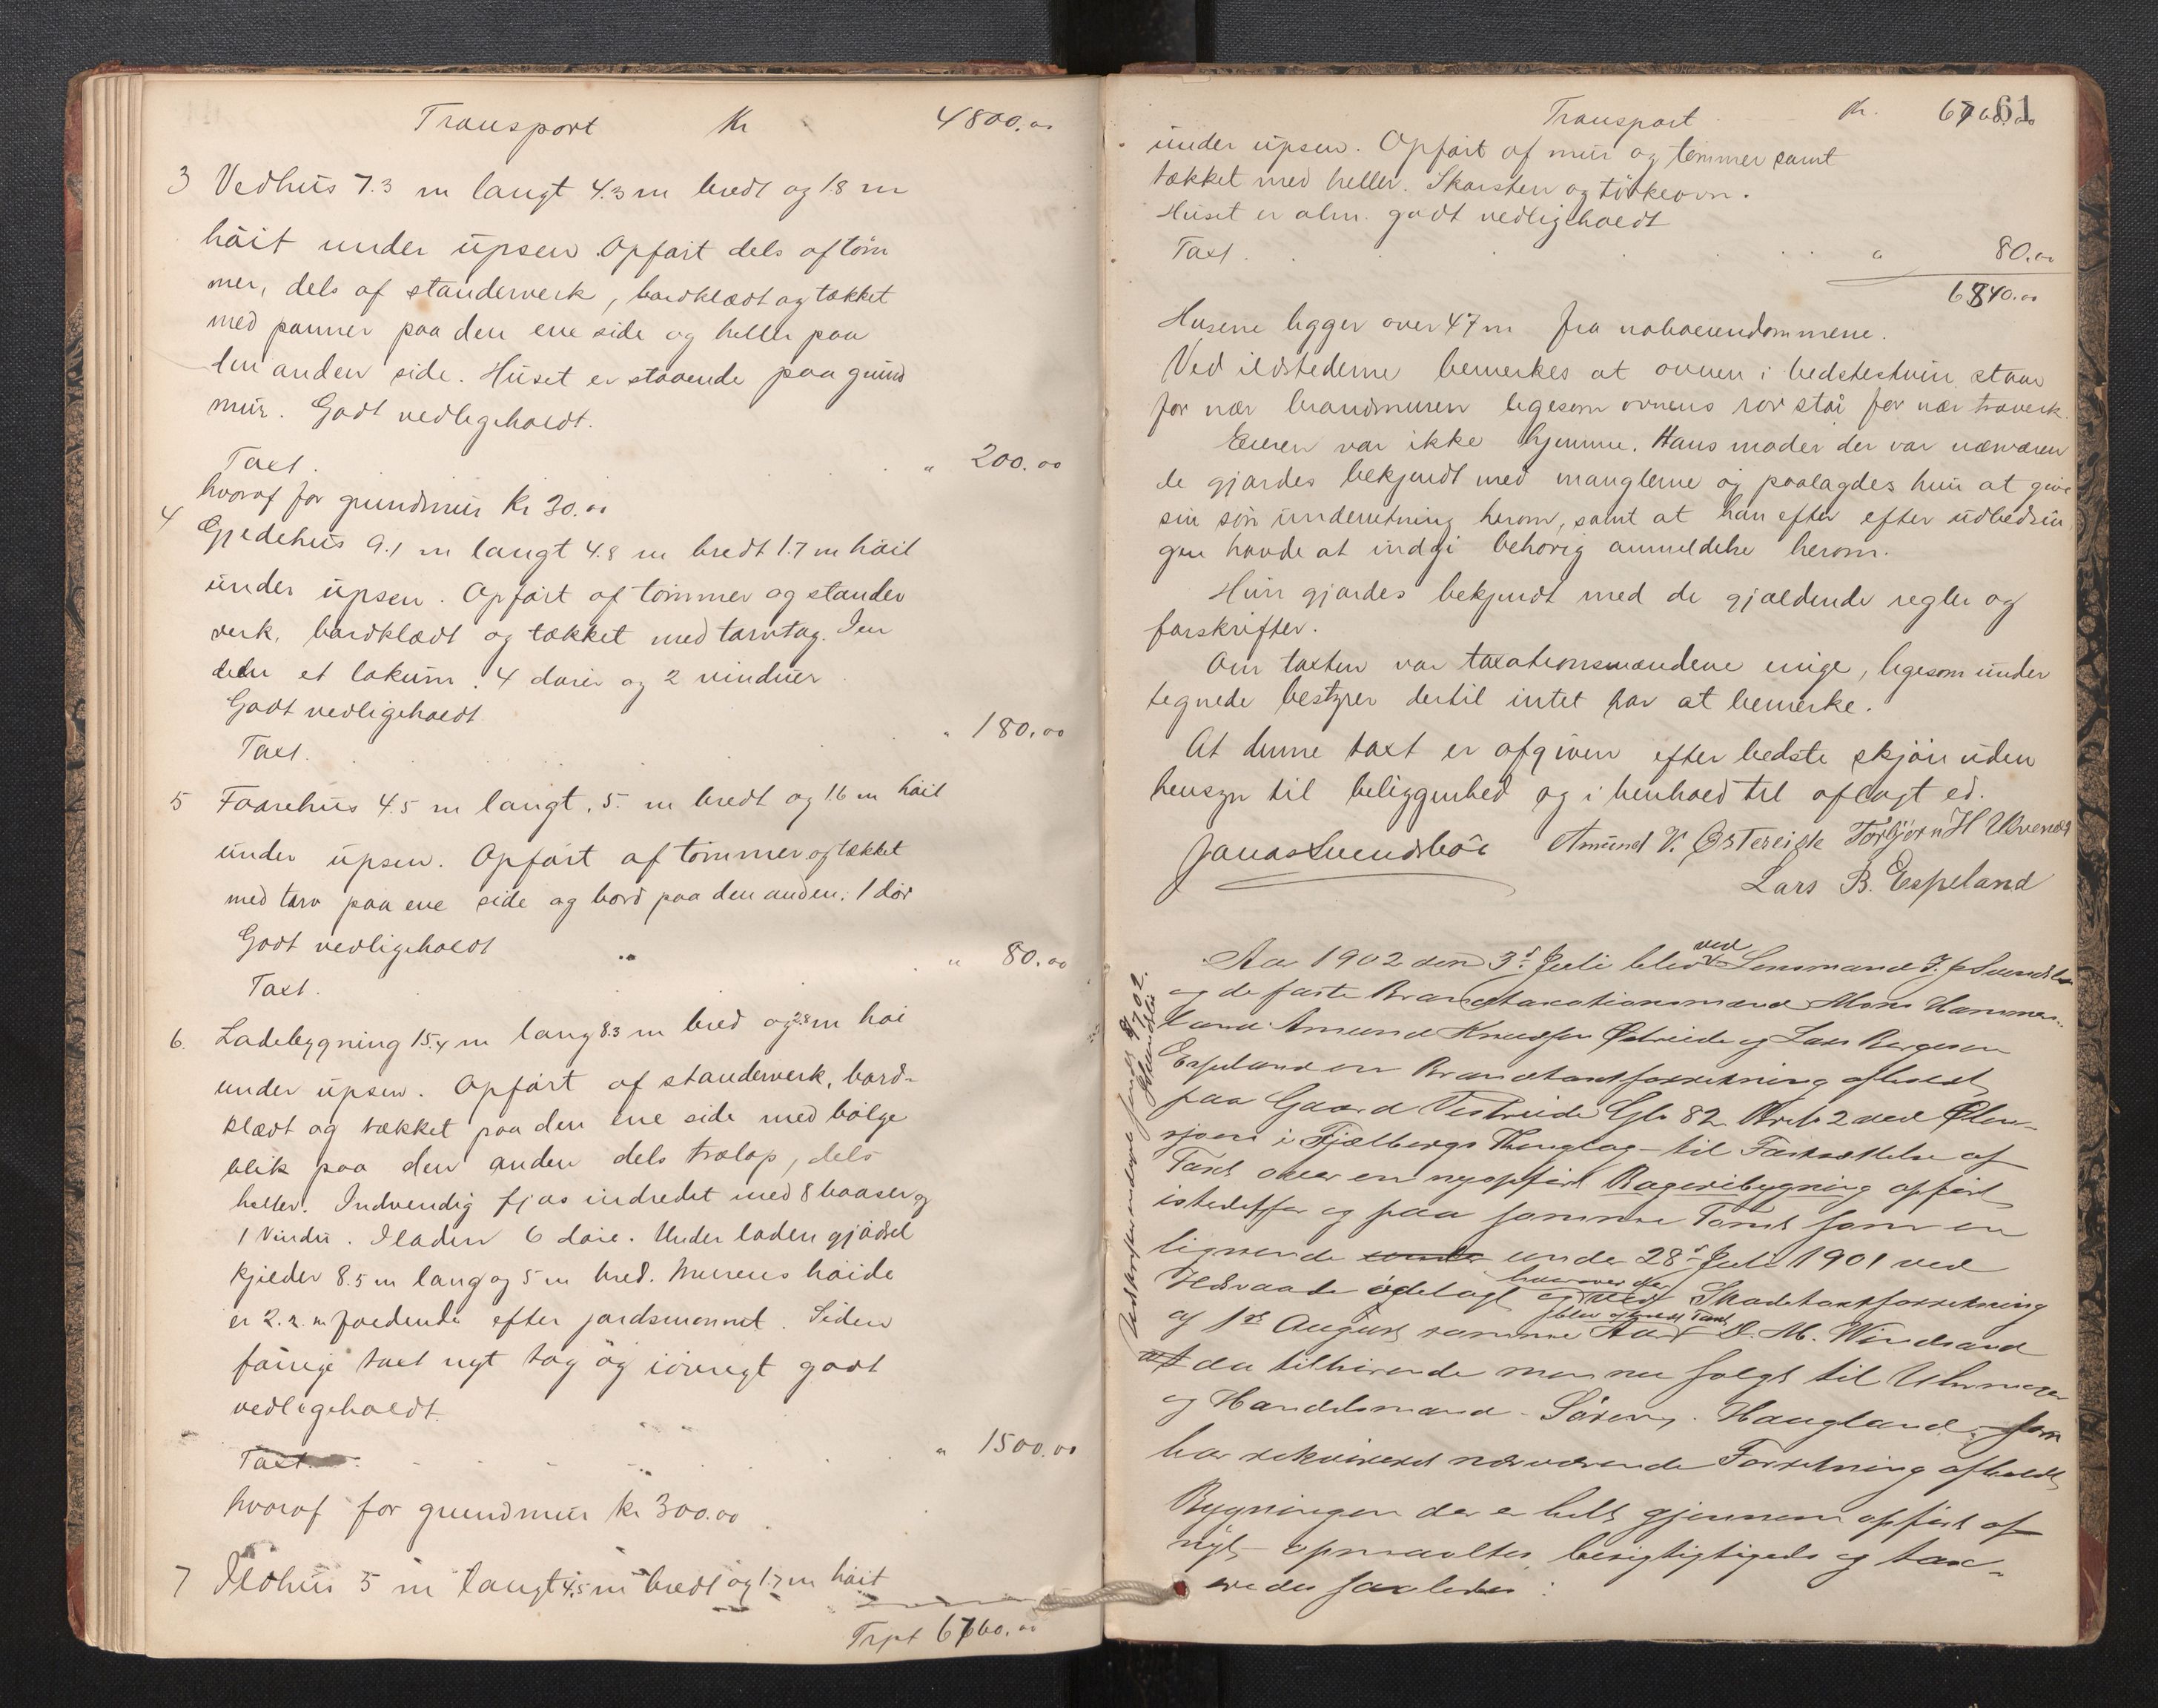 Transport Kr 4800.00
3 Vedhus 7.3 m langt 4.3 m bredt og 1.8 m
höit under upsen. Opfört dels af töm
mer, dels af standerverk, bordklædt og tækket
med panner paa den ene side og heller paa
den anden side. Huset er staaende paa grund
mur. Godt vedligeholdt.
Taxt. " 200.00
hvoraf for grundmur Kr 30.00
4 Gjedehus 9.1 m langt 4.8 m bredt 1.7 m höit
under upsen. Opfört af tömmer og stander
verk, bordklædt og tækket med torvtag. Inn
deler et lokum. 4 dörer og 2 vinduer
Godt vedligeholdt
Taxt. " 180.00
5 Faarehus 4.5 m langt, 5. m bredt og 1.6 m höit
under upsen. Opfört af tömmer og tækket
med torv paa ene side og bord paa den anden. 1 dör
Godt vedligeholdt
Taxt. " 80.00
6. Ladebygning 15.4 m lang 8.3 m bred og 2.8 m höi
under upsen. Opfört af standerverk, bord-
klædt og tækket paa den ene side med bölge
blik paa den anden dels trælap, dels
heller. Indvendig fjös indredet med 8 baaser og
1 Vindu. I laden 6 döre. Under laden gjödsel
kjelder 8.5 m lang og 5 m bred. Murens höide
er 2.2. m faldende efter jordsmonnet. Siden
forrige taxt nyt tag og iövrigt godt
vedligeholdt.
Taxt. " 1500.00
hvoraf for grundmur Kr 300.00
7 Ildhus 5 m langt 4.5 m bredt og 1.7 m höit
Trpt 6760.00
Transport Kr. 6760.00
61
under upsen. Opfört af mur og tömmer samt
tækket med heller. Skorsten og törkeovn.
Huset er alm. godt vedligeholdt
Taxt. " 80.00
6840.00
Husene ligger over 47 m fra naboeiendommene.
Ved ildstederne bemerkes at ovnen i bedstestuen staar
for nær brandmuren ligesom ovnens rör staar for nær træverk.
Eieren var ikke hjemme. Hans moder der var nærværen
de gjordes bekjendt med manglerne og paalagdes hun at give
sin sön underretning herom, samt at han efter efter udbedrin
gen havde at indgi behörig anmeldelse herom.
Hun gjordes bekjendt med de gjældende regler og
forskrifter.
Om taxten var taxationsmændene enige, ligesom under
tegnede bestyrer dertil intet har at bemerke.
At denne taxt er afgiven efter bedste skjön uden
hensyn til beliggenhed og i henhold til aflagt ed.
Jonas Svendsböe Amund K. Østereide Torbjørn H Kvernes
Lars B. Espeland
Aar 1902 den 3die Juli blev ved Lensmand J. J. Svendsböe
og de faste Brandtaxationsmænd Mons Hammer-
land Amund Knudsen Østreide og Lars Børgesen
Espeland en Brandtaxtforretning afholdt
paa Gaard Vestreide Gb 82 Brb 2 ved Ølen-
sjöen i Fjelbergs Thinglag - til Fastsættelse af
Taxt over en nyopfört Bageribygning opfört
istedetfor og paa samme Tomt som en
lignende under 28de Juli 1901 ved
Ildsvaade ödelagt hvorover der ved Skadetaxtforretning
af 1ste August samme Aar blev afholdt Taxt D. M. Windsand
da tilhörende men nu solgt til Uhrmager
og Handelsmand Sören J. Haugland, som
har rekvireret nærværende Forretning afholdt
Bygningen der er helt gjennem opfört af
nyt opmaaltes besigtigtigeds og tax-
eredes saaledes: